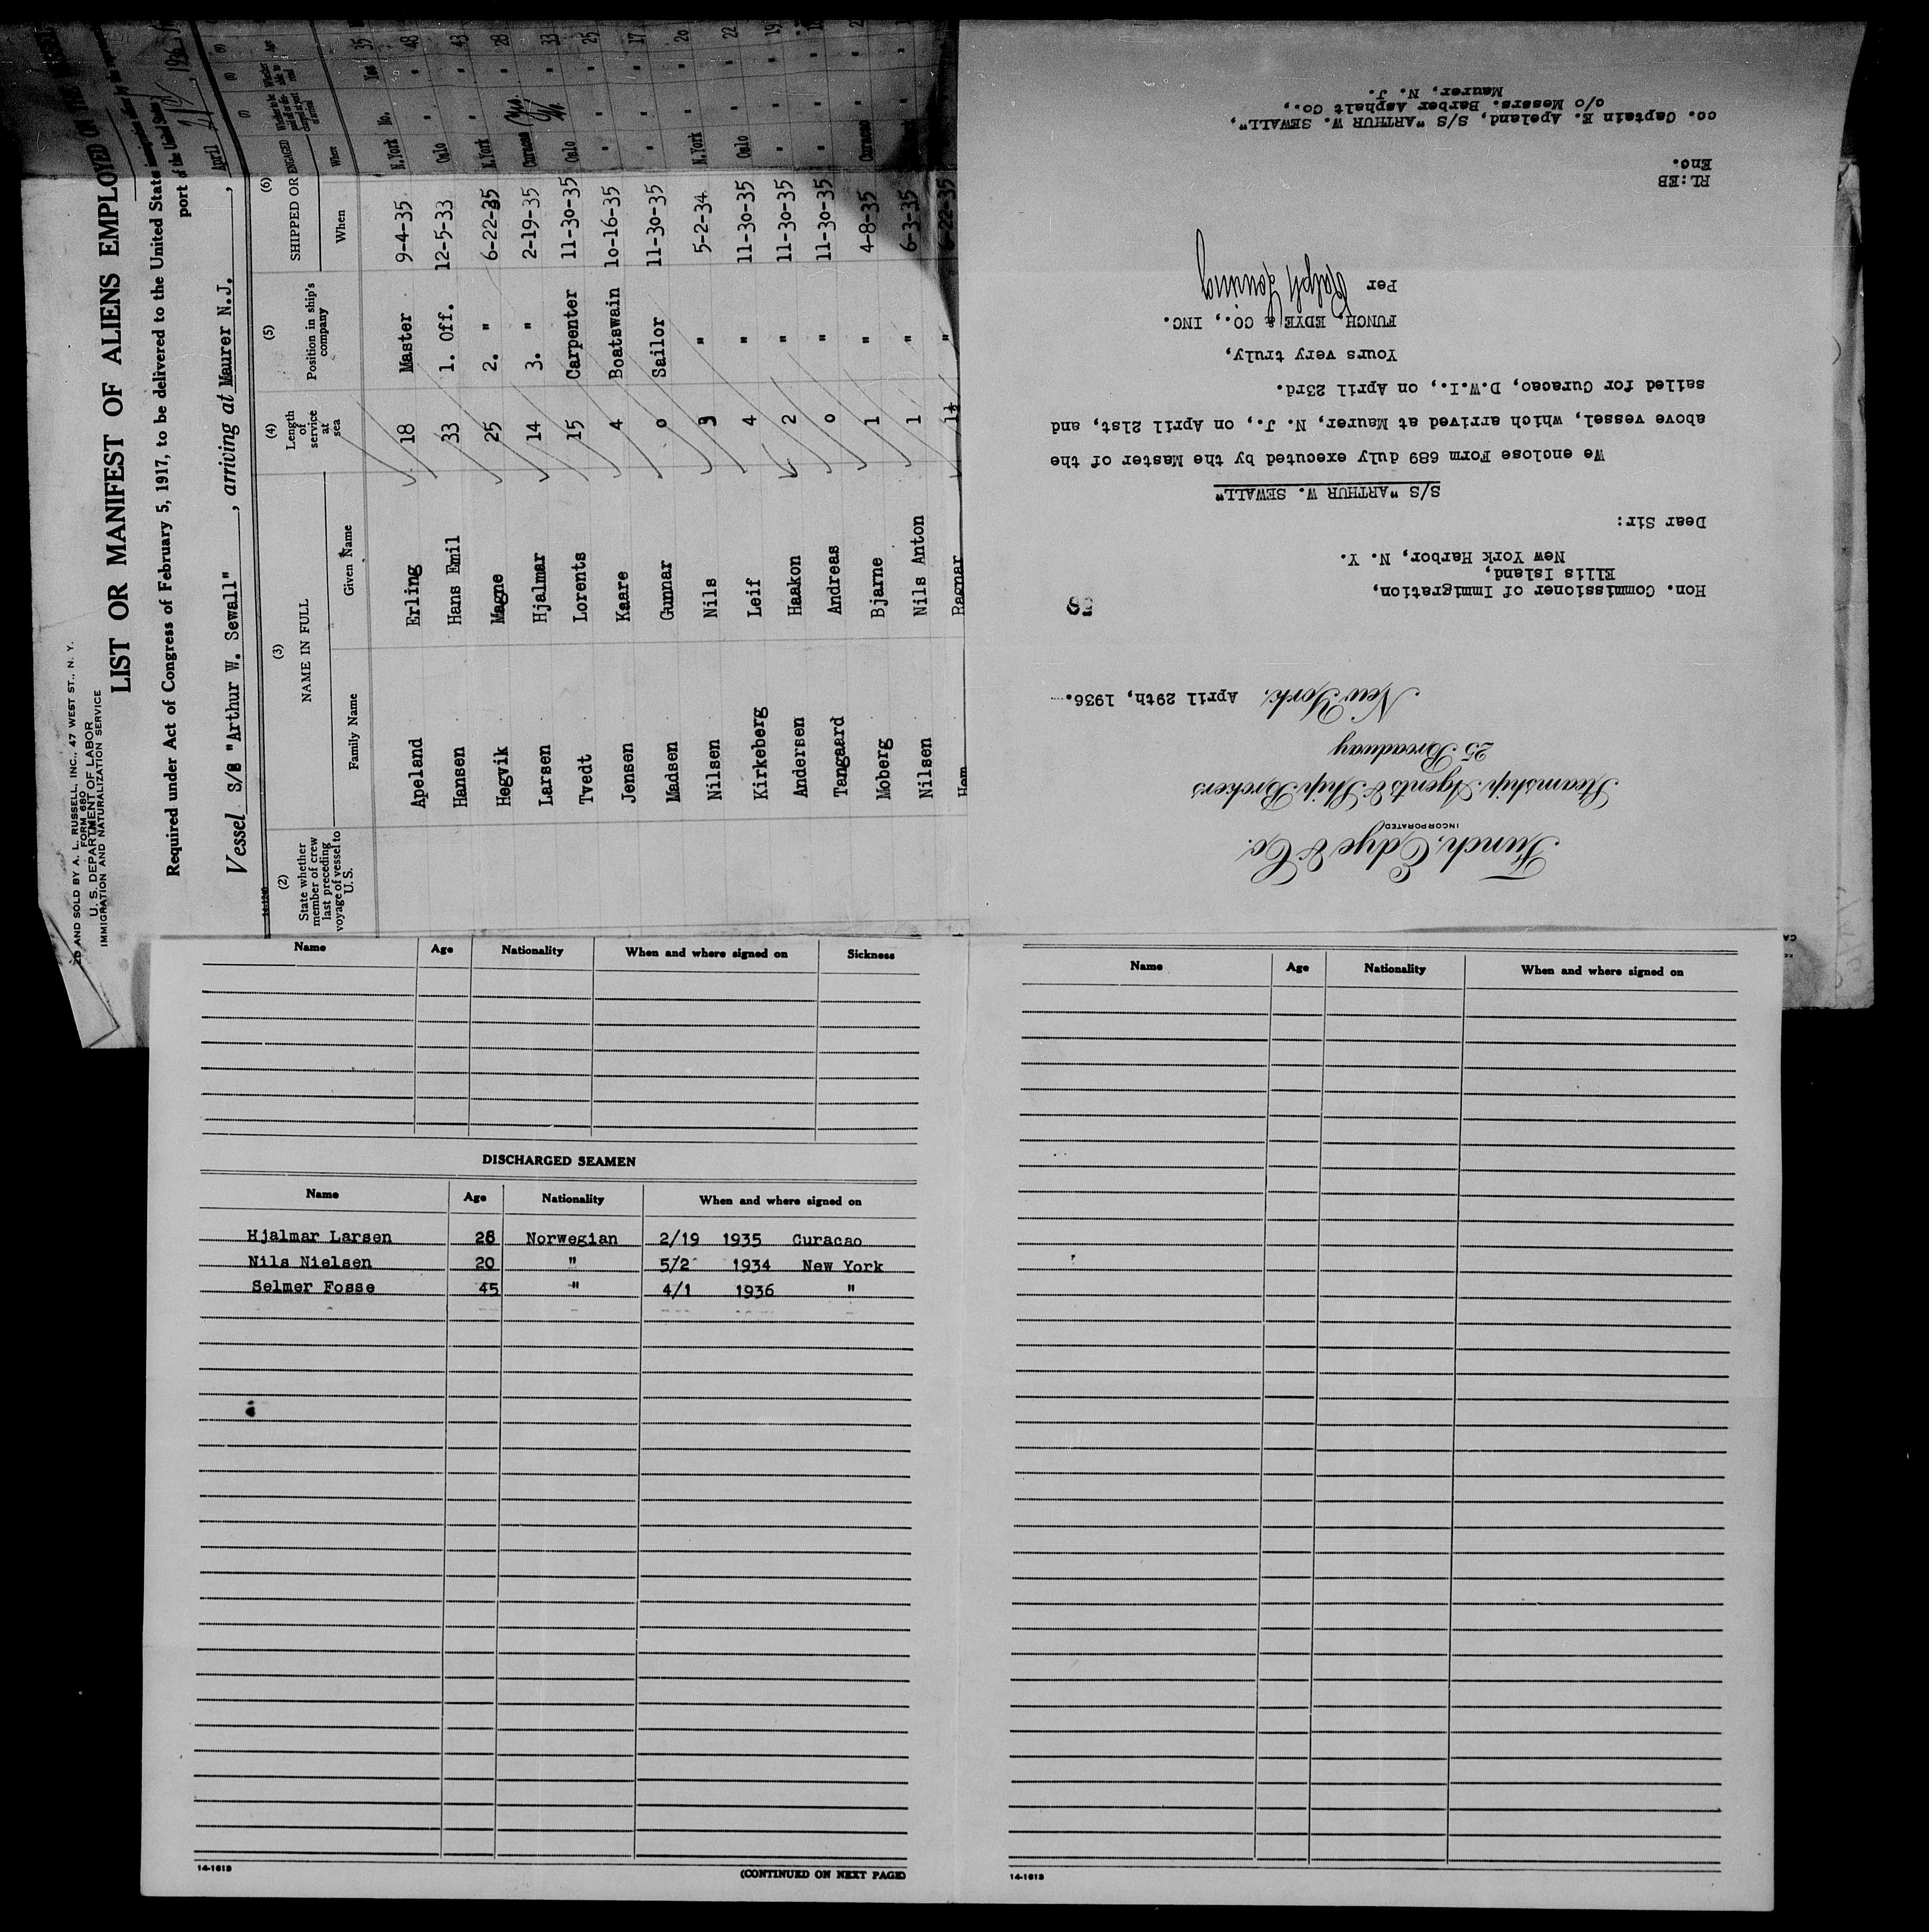 26 AND SOLD BY A. L. RUSSELL, INC., 47 WEST ST., N. Y.
FORM 680
U. S. DEPARTMENT OF LABOR
IMMIGRATION AND NATURALIZATION SERVICE
LIST OR MANIFEST OF ALIENS EMPLOYED ON THE
Required under Act of Congress of February 5, 1917, to be delivered to the United State immigration officer by the
port of the United States
Vessel S/S "Arthur W. Sewall", arriving at Maurer N.J., April 21
14-1240
(2) (3) (4) (5) (6)
State whether member of crew last preceding voyage of vessel to U. S.
NAME IN FULL
Family Name Given Name
Length of service at sea
Position in ship's company
SHIPPED OR ENGAGED
When Where
Apeland Erling 18 Master 9-4-35 N.York No. Yes 35
Hansen Hans Emil 33 1. Off. 12-5-33 Oslo " " 48
Hegvik Magne 25 2. " 6-22-35 N.York " " 43
Larsen Hjalmar 14 3. " 2-19-35 Curacao " 28
Tvedt Lorents 15 Carpenter 11-30-35 Oslo " 33
Jensen Kaare 4 Boatswain 10-16-35 " " " 25
Madsen Gunnar 0 Sailor 11-30-35 " " " 17
Nilsen Nils 3 " 5-2-34 N.York " " 20
Kirkeberg Leif 4 " 11-30-35 Oslo " " 22
Andersen Haakon 2 " 11-30-35 " " " 19
Tangaard Andreas 0 " 11-30-35 " " "
Moberg Bjarne 1 " 4-8-35 Curacao " "
Nilsen Nils Anton 1 " 6-3-35 " "
Hem Ragnar 1½ " 6-22-35
Funch, Edye & Co.
INCORPORATED
Steamship Agents & Ship Brokers
25 Broadway
New York, April 29th, 1936.
Hon. Commissioner of Immigration,
Ellis Island,
New York Harbor, N. Y.
Dear Sir:
S/S "ARTHUR W. SEWALL"
We enclose Form 689 duly executed by the Master of the
above vessel, which arrived at Maurer, N. J., on April 21st, and
sailed for Curacao, D.W.I., on April 23rd.
Yours very truly,
FUNCH, EDYE & CO., INC.
Per
RL:EB
Enc.
cc. Captain E. Apeland, S/S "ARTHUR W. SEWALL",
c/o Messrs. Barber Asphalt Co.,
Maurer, N. J.
Name Age Nationality When and where signed on Sickness
DISCHARGED SEAMEN
Name Age Nationality When and where signed on
Hjalmar Larsen 28 Norwegian 2/19 1935 Curacao
Nils Nielsen 20 " 5/2 1934 New York
Selmer Fosse 45 " 4/1 1936 "
14-1613 (CONTINUED ON NEXT PAGE)
Name Age Nationality When and where signed on
14-1613